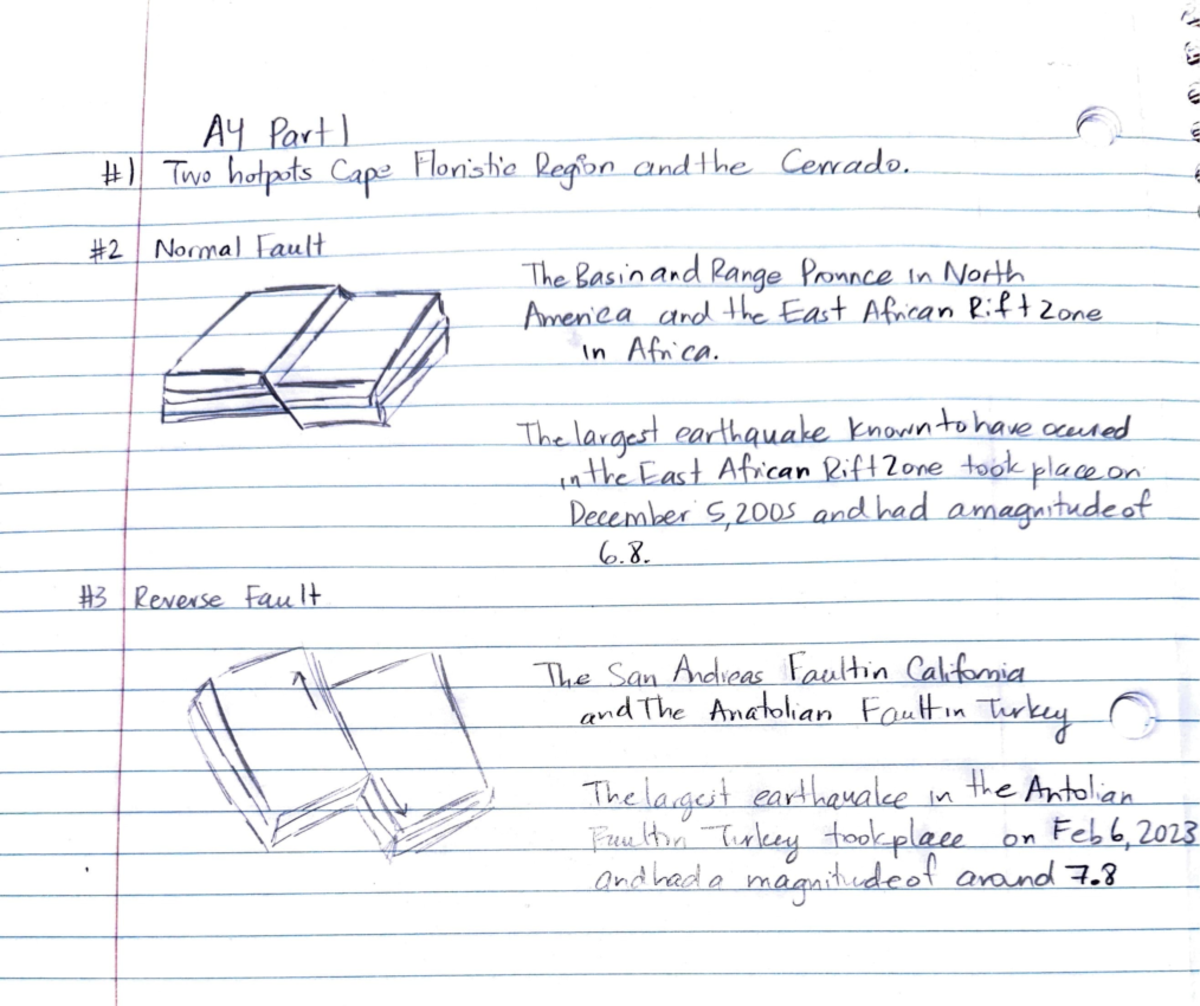 A4 Part 1
#1 Two hotpots Cape Floristic Region and the Cerrado.
#2 Normal Fault
The Basin and Range Pronnce in North
America and the East African Rift Zone
in Africa.
The largest earthquake known to have occured
in the East African Rift Zone took place on
December 5, 2005 and had a magnitude of
6.8.
#3 Reverse Fault
The San Andreas Fault in California
and The Anatolian Fault in Turkey
The largest earthquake in the Antolian
Fault in Turkey took place on Feb 6, 2023
and had a magnitude of around 7.8